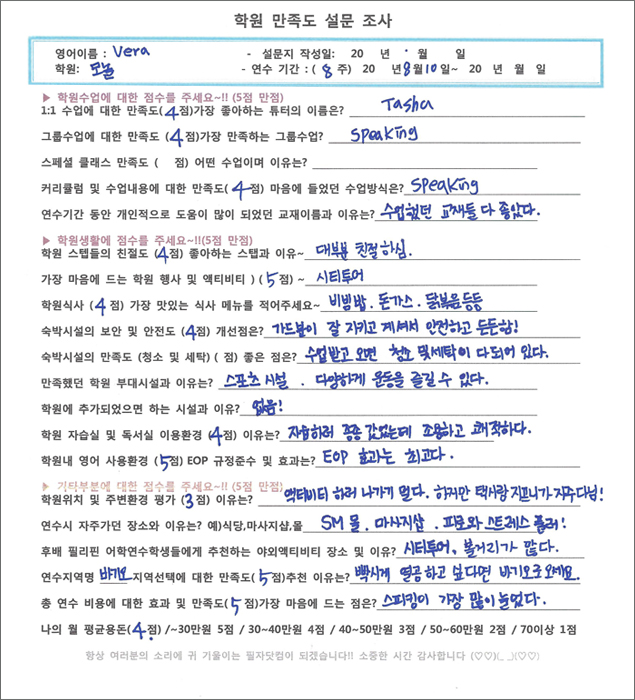 학원 만족도 설문 조사
영어이름 : Vera - 설문지 작성일: 20 년 · 월 일
학원: 모놀 - 연수 기간 : ( 8 주) 20 년8월10일~ 20 년 월 일
▶ 학원수업에 대한 점수를 주세요~!! (5점 만점)
1:1 수업에 대한 만족도(4점)가장 좋아하는 튜터의 이름은? Tasha
그룹수업에 대한 만족도 (4점)가장 만족하는 그룹수업? Speaking
스페셜 클래스 만족도 ( 점) 어떤 수업이며 이유는?
커리큘럼 및 수업내용에 대한 만족도(4점) 마음에 들었던 수업방식은? Speaking
연수기간 동안 개인적으로 도움이 많이 되었던 교재이름과 이유는? 수업했던 교재들 다 좋았다.
▶ 학원생활에 점수를 주세요~!!(5점 만점)
학원 스텝들의 친절도 (4점) 좋아하는 스탭과 이유~ 대부분 친절하심.
가장 마음에 드는 학원 행사 및 액티비티 ) (5점) ~ 시티투어
학원식사 (4점) 가장 맛있는 식사 메뉴를 적어주세요~ 비빔밥. 돈가스. 닭볶음등등
숙박시설의 보안 및 안전도 (4점) 개선점은? 가드분이 잘 지키고 계셔서 안전하고 든든함!
숙박시설의 만족도 (청소 및 세탁) ( 점) 좋은 점은? 수업받고 오면 청소 및 세탁이 다 되어 있다.
만족했던 학원 부대시설과 이유는? 스포츠 시설 . 다양하게 운동을 즐길 수 있다.
학원에 추가되었으면 하는 시설과 이유? 없음!
학원 자습실 및 독서실 이용환경 (4점) 이유는? 자습하러 종종 갔었는데 조용하고 쾌적하다.
학원내 영어 사용환경 (5점) EOP 규정준수 및 효과는? EOP 효과는 최고다.
▶ 기타부분에 대한 점수를 주세요~!! (5점 만점)
학원위치 및 주변환경 평가 (3점) 이유는? 액티비티 하러 나가기 멀다. 하지만 택시랑 지프니가 자주다님!
연수시 자주가던 장소와 이유는? 예)식당,마사지샵,몰 SM 몰. 마사지샵 . 피로와 스트레스 풀러!
후배 필리핀 어학연수학생들에게 추천하는 야외액티비티 장소 및 이유? 시티투어, 볼거리가 많다.
연수지역명 바기오 지역선택에 대한 만족도(5점)추천 이유는? 빡시게 열공하고 싶다면 바기오로 오세요.
총 연수 비용에 대한 효과 및 만족도(5점)가장 마음에 드는 점은? 스피킹이 가장 많이 늘었다.
나의 월 평균용돈(4점) /~30만원 5점 / 30~40만원 4점 / 40~50만원 3점 / 50~60만원 2점 / 70이상 1점
항상 여러분의 소리에 귀 기울이는 필자닷컴이 되겠습니다!! 소중한 시간 감사합니다 (♡♡)(_ _)(♡♡)